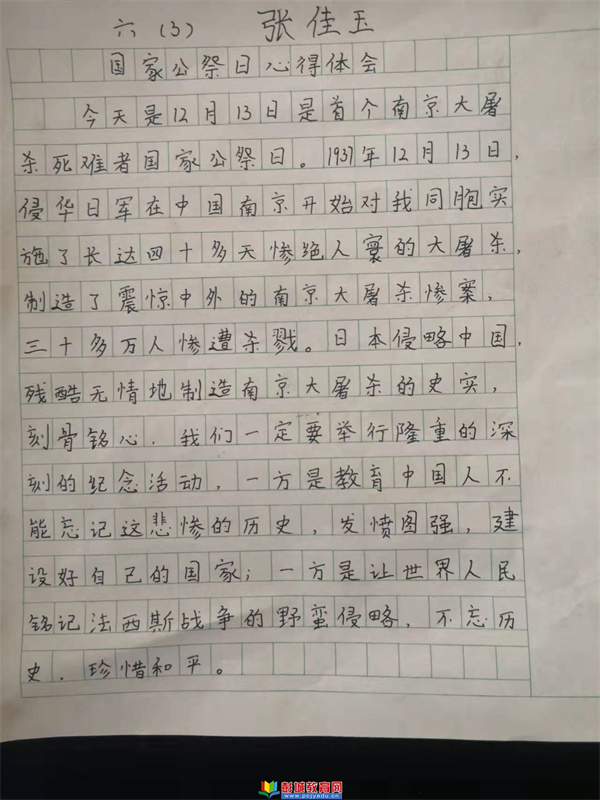 六（3） 张佳玉
国家公祭日心得体会
今天是12月13日是首个南京大屠
杀死难者国家公祭日。1937年12月13日，
侵华日军在中国南京开始对我同胞实
施了长达四十多天惨绝人寰的大屠杀，
制造了震惊中外的南京大屠杀惨案，
三十多万人惨遭杀戮。日本侵略中国，
残酷无情地制造南京大屠杀的史实，
刻骨铭心．我们一定要举行隆重的深
刻的纪念活动，一方是教育中国人不
能忘记这悲惨的历史，发愤图强，建
设好自己的国家；一方是让世界人民
铭记法西斯战争的野蛮侵略，不忘历
史．珍惜和平。
彭城教育网
www.pcjyedu.cn